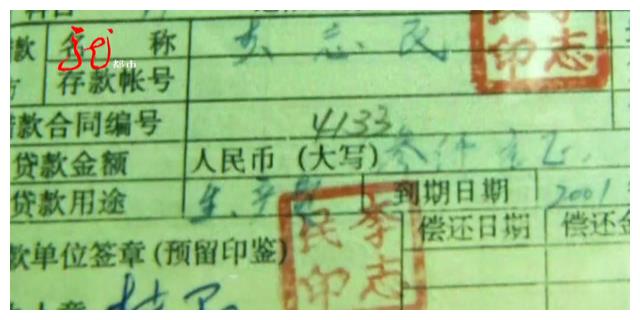 款 名称 李志民 李志民印
龙 都市
存款帐号
借款合同编号 4133
贷款金额 人民币(大写) 叁仟元正
贷款用途 到期日期 2001
偿还日期 偿还金
款单位签章(预留印鉴) 李志民印